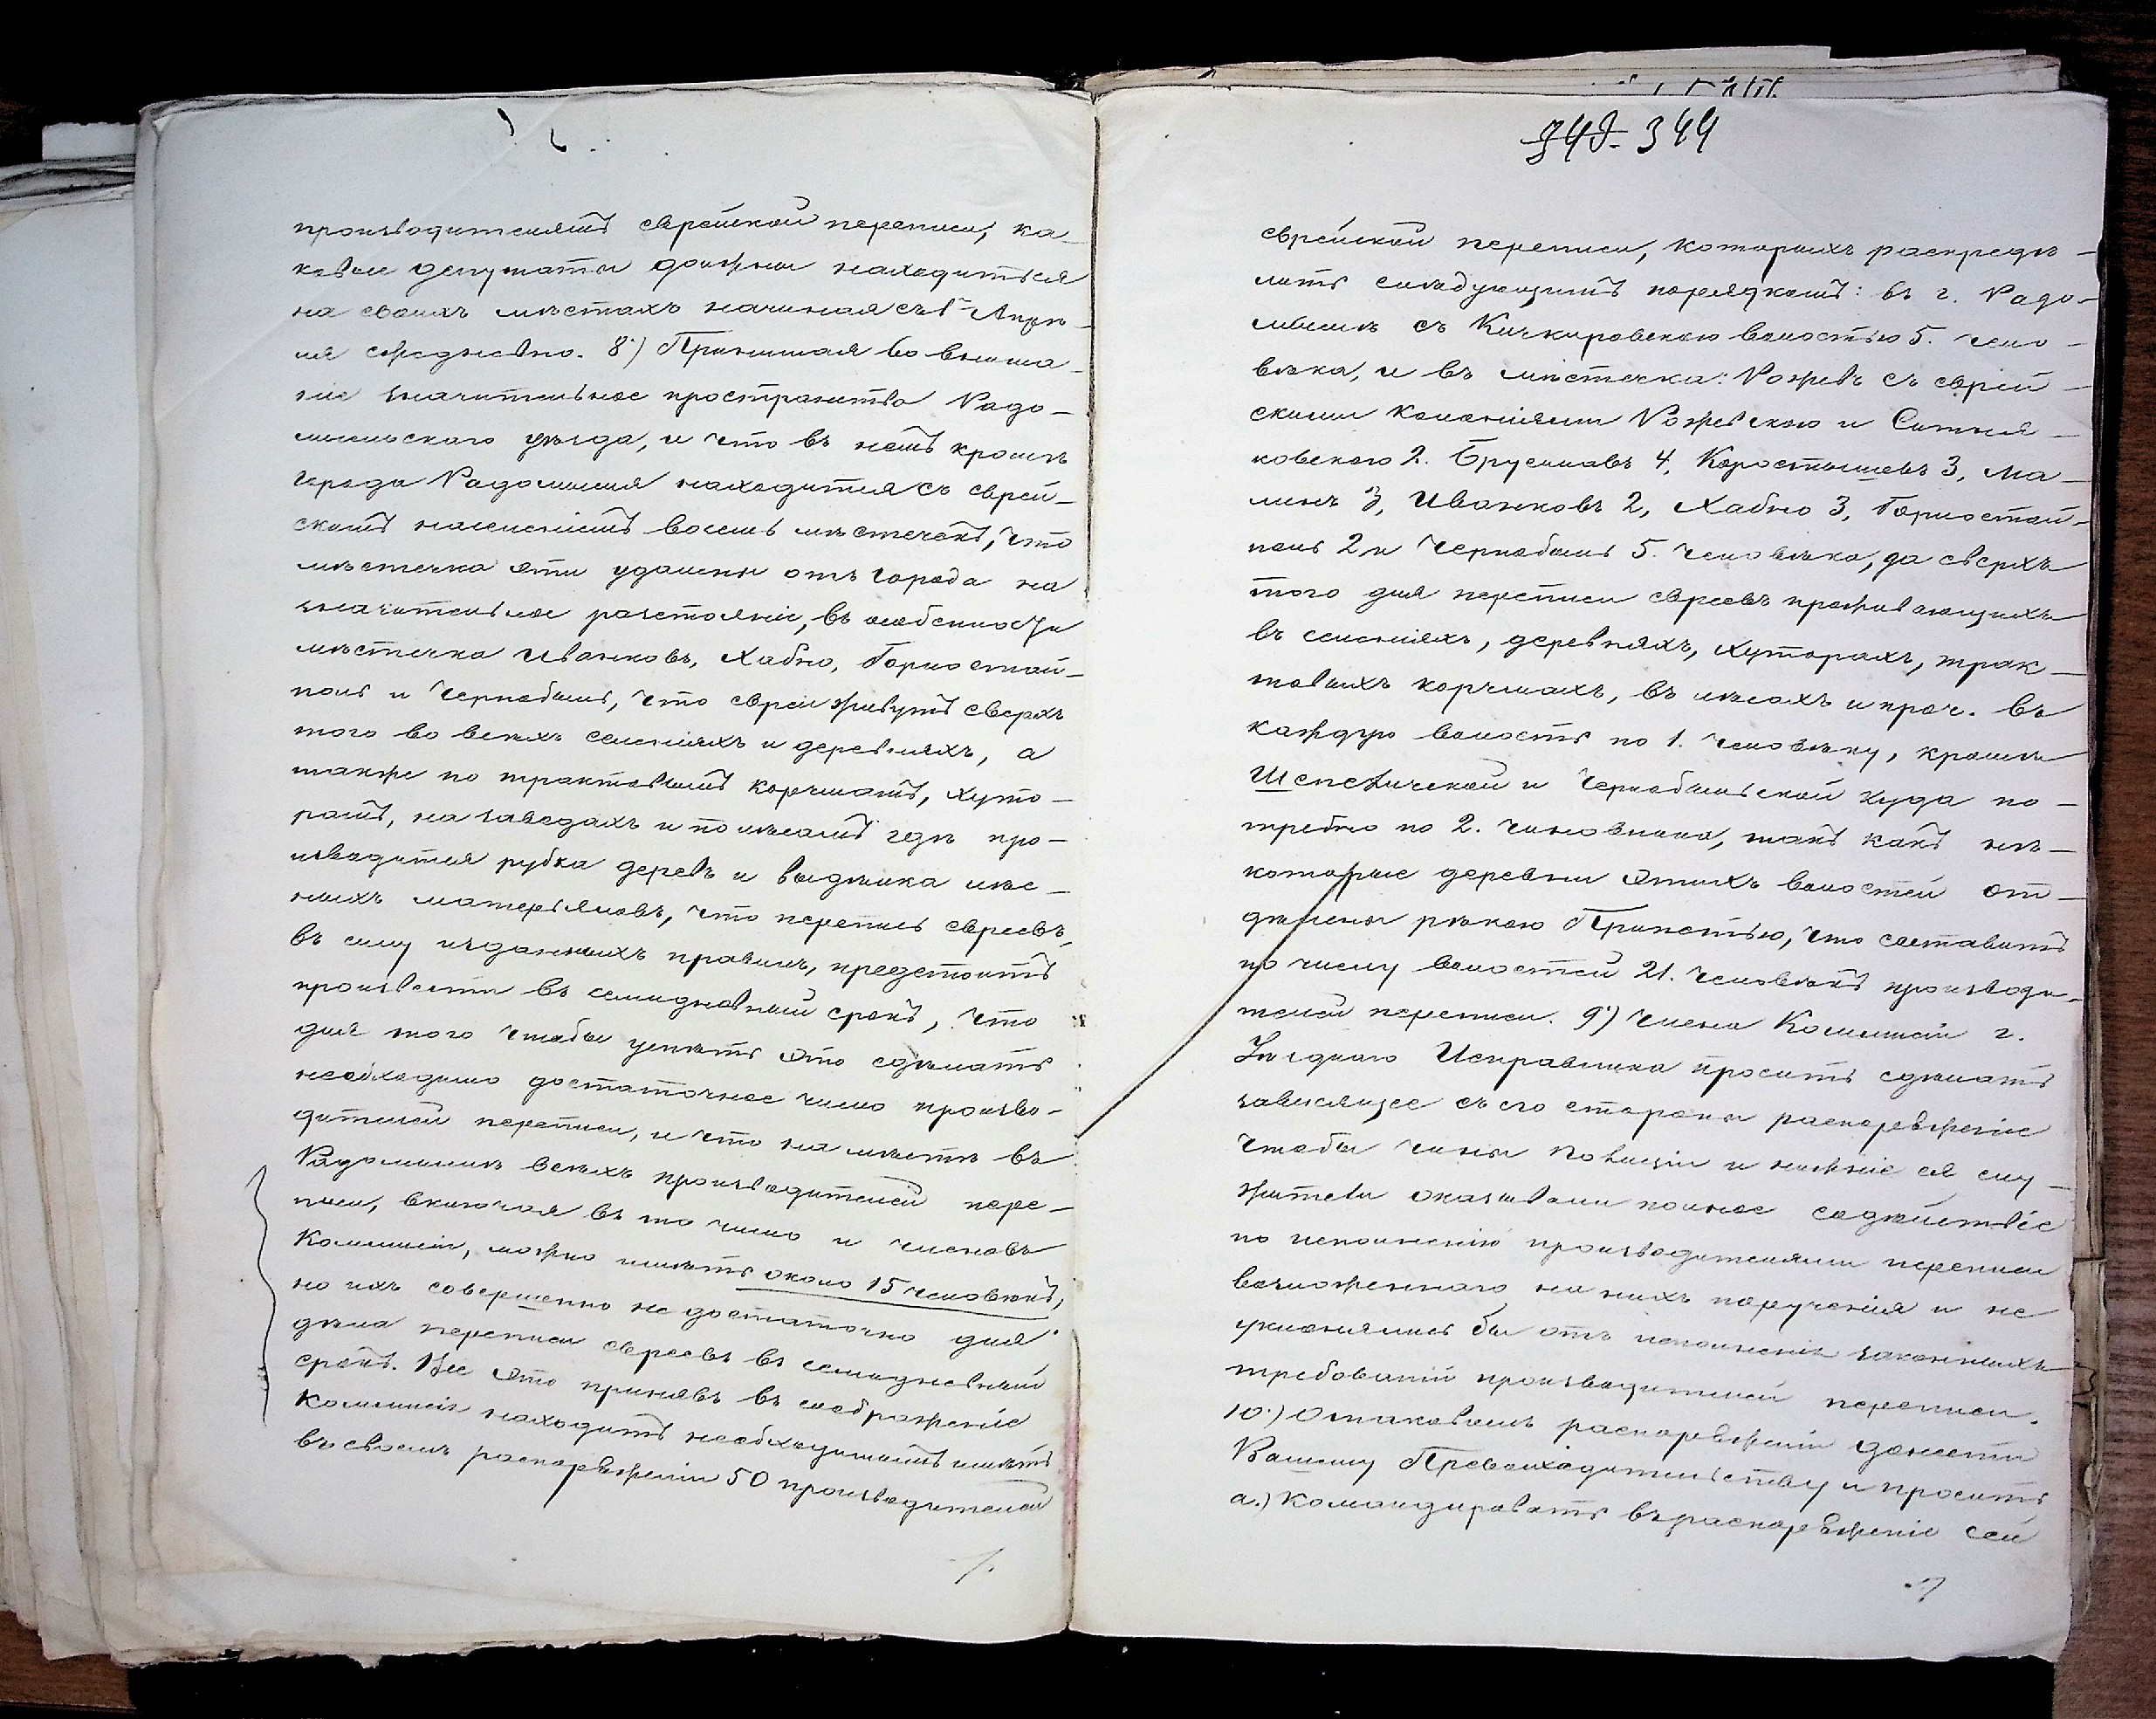 производителямъ еврейской переписи, ка-
ковые депутаты должны находиться
на своихъ мѣстахъ начиная съ 1го Апрѣ-
ля ежедневно. 8.) Принимая во внима-
ніе значительное пространство Радо-
мысльскаго уѣзда, и что въ немъ кромѣ
города Радомысля находится съ еврей-
скимъ населеніемъ восемь мѣстечекъ, что
мѣстечка эти удалены отъ города на
значительное разстояніе, въ особенности
мѣстечка Иванковъ, Хабно, Горностай-
поль и Чернобыль, что евреи живутъ сверхъ
того во всѣхъ селеніяхъ и деревняхъ, а
также по трактовымъ корчмамъ, хуто-
рамъ, на заводахъ и по лѣсамъ гдѣ про-
изводится рубка деревъ и выдѣлка лѣс-
ныхъ матерьяловъ, что перепись евреевъ,
въ силу изданныхъ правилъ, предстоитъ
произвести въ семидневный срокъ, что
для того чтобы успѣть это сдѣлать
необходимо достаточное число произво-
дителей переписи, и что на мѣстѣ въ
Радомыслѣ всѣхъ производителей пере-
писи, включая въ то число и членовъ
Коммисіи, можно имѣть около 15 человѣкъ,
но ихъ совершенно не достаточно для
дѣла переписи евреевъ въ семидневный
срокъ. Все это принявъ въ соображеніе
Коммисія находитъ необходимымъ имѣть
въ своемъ распоряженіи 50 производителей
344
еврейской переписи, которыхъ распредѣ-
лить слѣдующимъ порядкомъ: въ г. Радо-
мыслѣ съ Кичкировскою волостью 5. чело-
вѣка, и въ мѣстечка: Рожевъ съ еврей-
скими колоніями Рожевскою и Ситня-
ковскою 2. Брусиловъ 4, Коростышевъ 3, Ма-
линъ 3, Иванковъ 2, Хабно 3, Горностай-
поль 2 и Чернобыль 5. человѣка, да сверхъ
того для переписи евреевъ проживающихъ
въ селеніяхъ, деревняхъ, хуторахъ, трак-
товыхъ корчмахъ, въ лѣсахъ и проч. въ
каждую волость по 1. человѣку, кромѣ
Шепеличской и Чернобыльской куда по-
требно по 2. чиновника, такъ какъ нѣ-
которые деревни этихъ волостей от-
дѣлены рѣкою Припетью, что составитъ
по числу волостей 21. человѣкъ производи-
телей переписи. 9.) Члена Коммисіи г.
Уѣзднаго Исправника просить сдѣлать
зависящее съ его стороны распоряженіе
чтобы чины полиціи и нижніе ея слу-
жители оказывали полное содѣйствіе
по исполненію производителями переписи
возложеннаго на нихъ порученія и не
уклонялись бы отъ исполненія законныхъ
требованій производителей переписи.
10.) О таковомъ распоряженіи донести
Вашему Превосходительству и просить
а.) Командировать въ распоряженіе сей